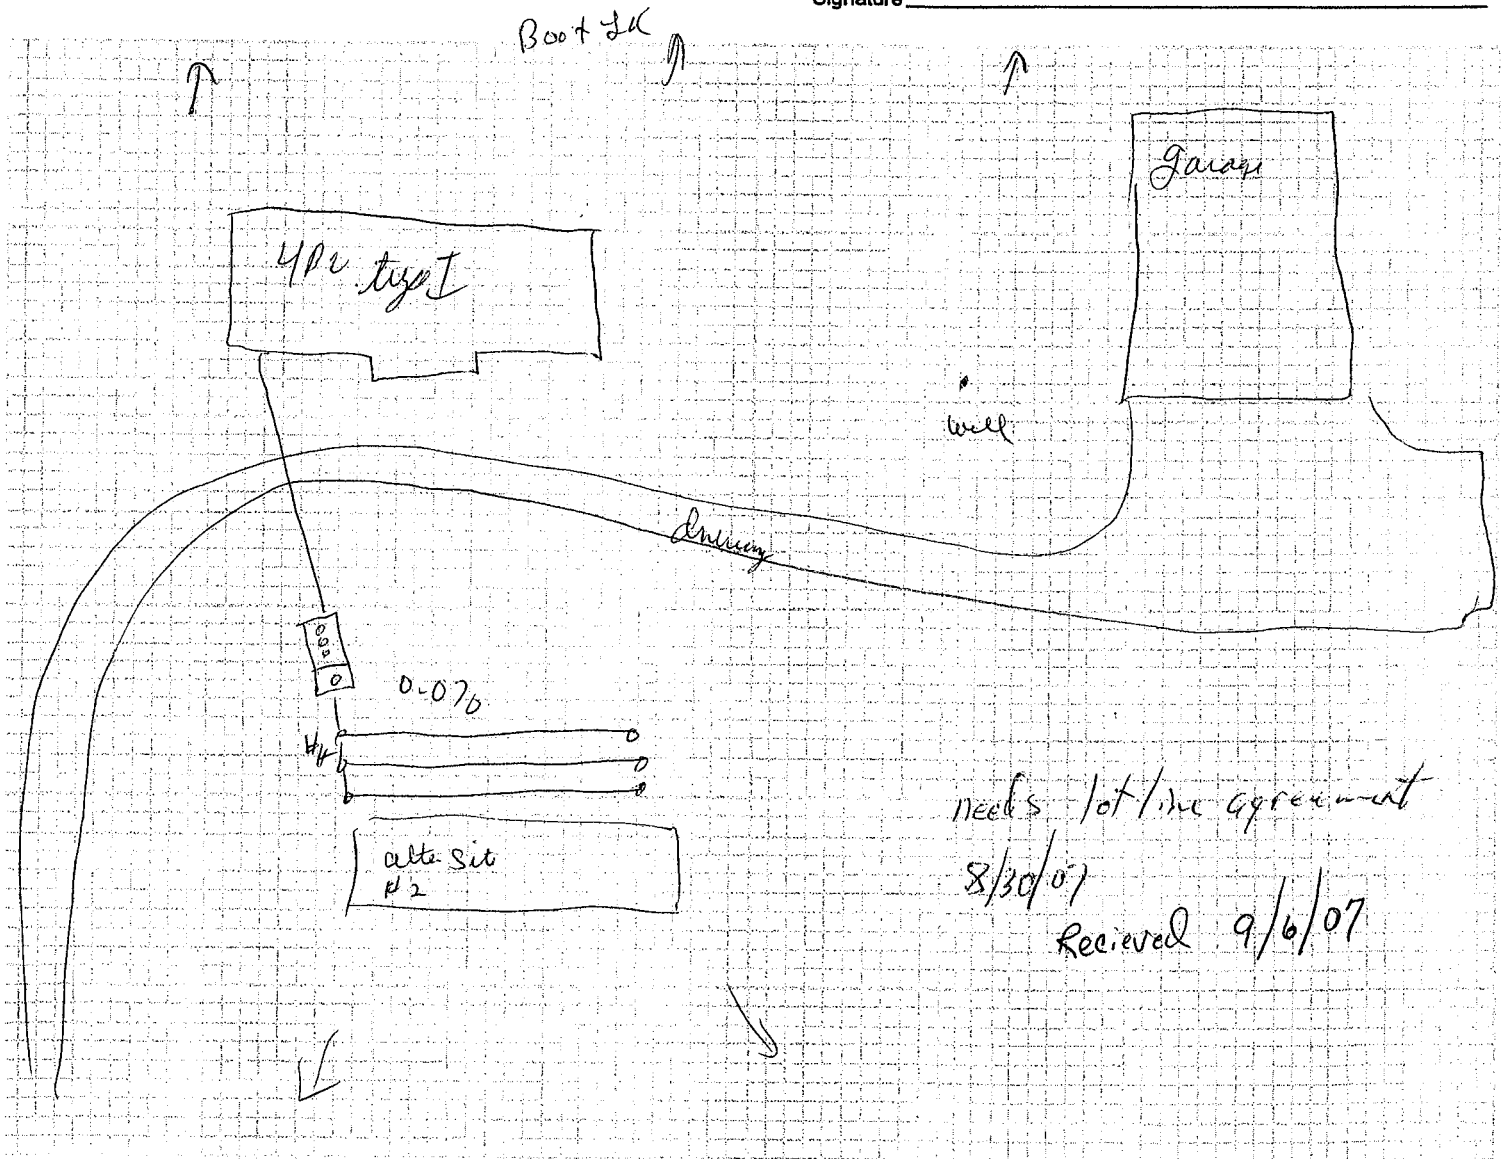 Signature
Boot LK
garage
4BR type I
well
driveway
0-0%
#1
alte. Site
#2
needs lot line agreement
8/30/07
Recieved 9/6/07